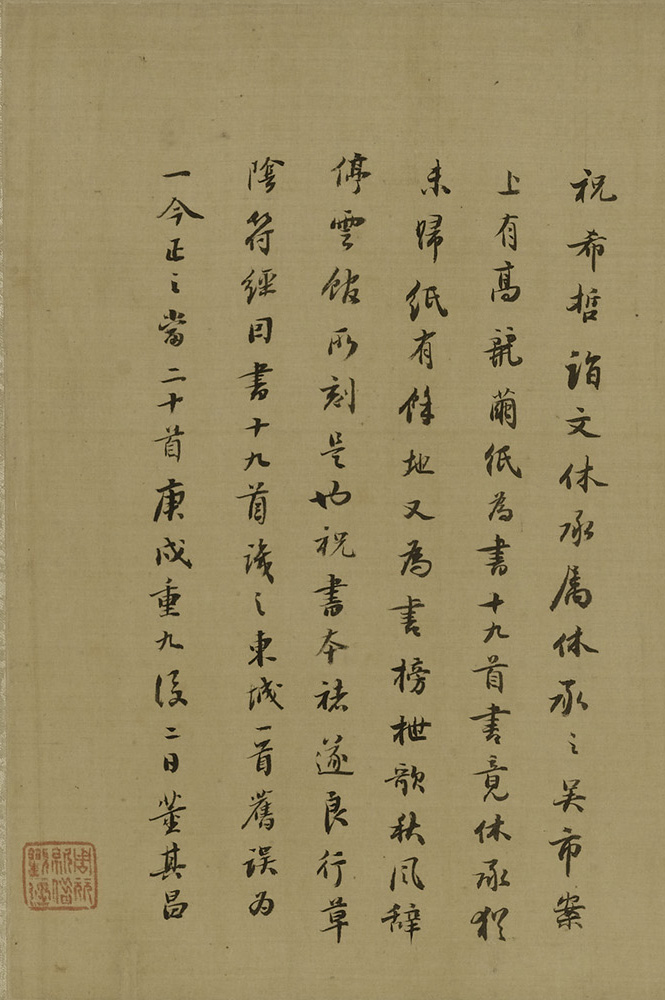 祝希哲詣文休承属休承之吴市案
上有高麗繭紙為書十九首書竟休承猶
未歸紙有餘地又為書榜枻歌秋風辭
停雲館所刻是也祝書本褚遂良行草
陰符經因書十九首識之東城一首舊誤为
一今正之當二十首庚戌重九後二日董其昌